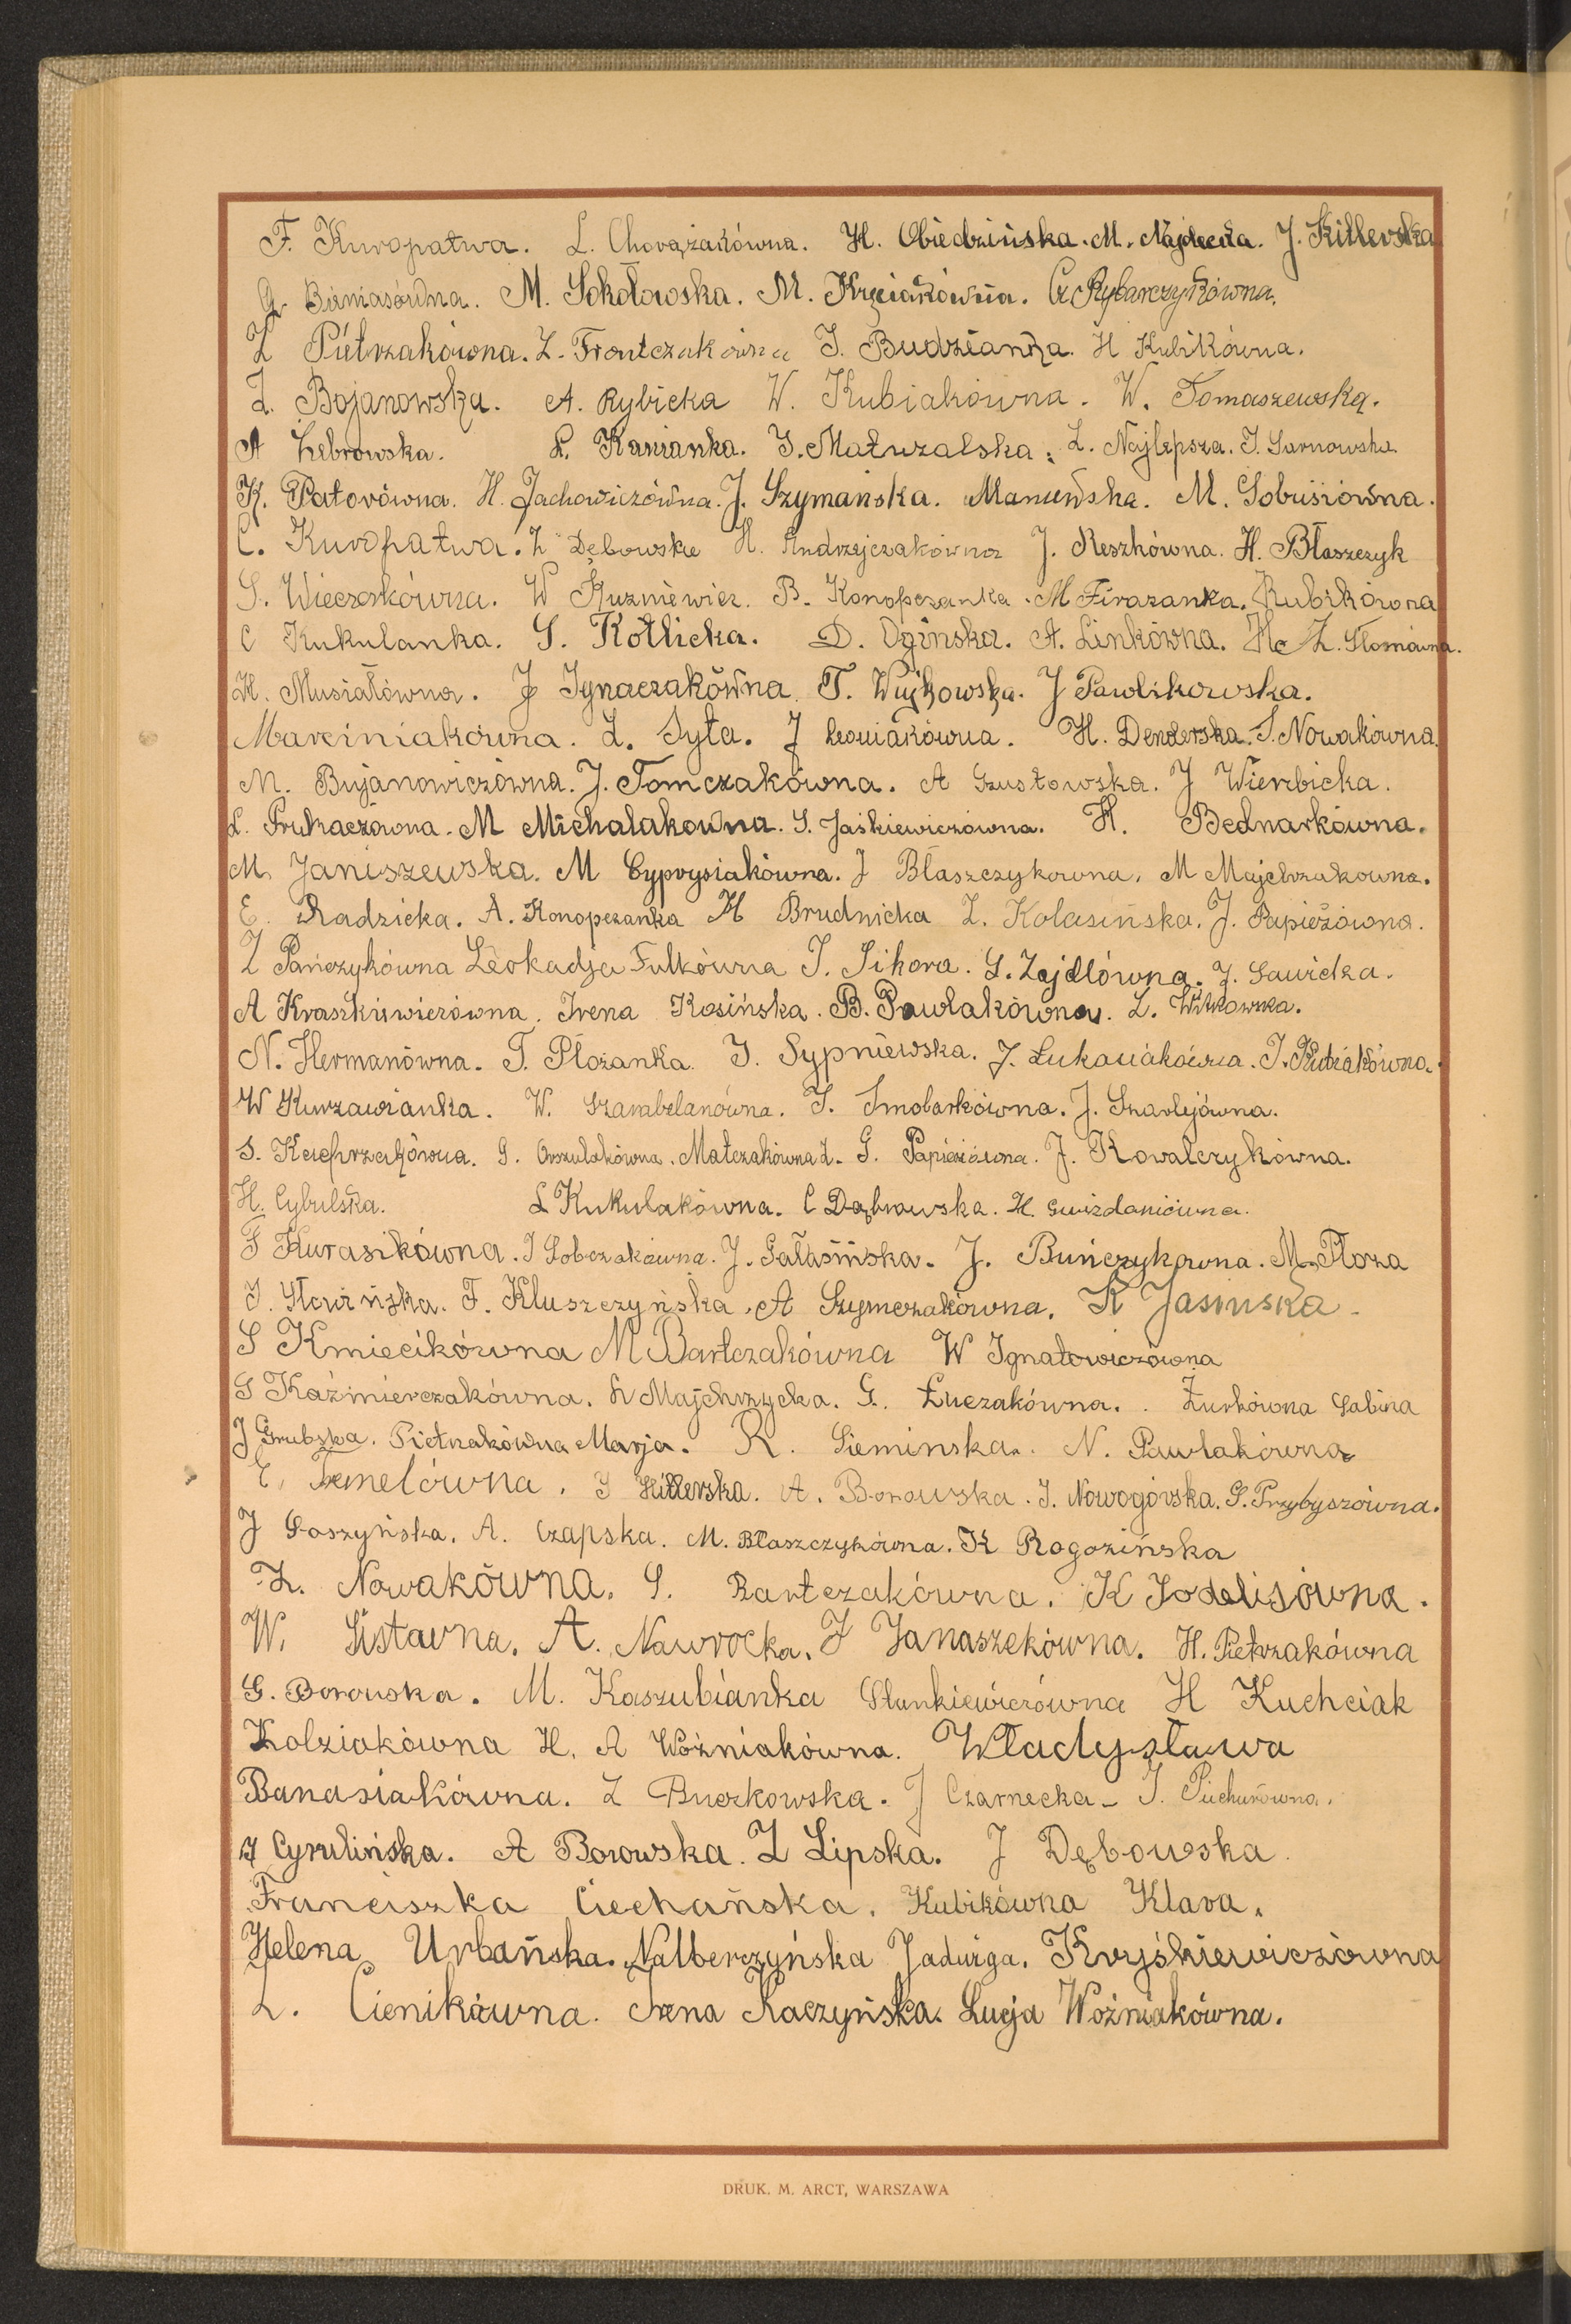 F. Kuropatwa. L. Chorążakówna. H. Obiedzińska. M. Najdecka. J. Killerska
G. Bieniasówna. M. Sokołowska. M. Krzciakówna. Cz Rybarczykówna.
Z Pietrzakówna. Z. Frontczakówna J. Budzianka. H Kubikówna.
Z. Bojanowska. A. Rybicka W. Kubiakówna. W. Tomaszewska.
A Żebrowska. L. Kanianka. J. Maturalska. L. Najlepsza. J. Sarnowska.
K. Patorówna. H. Jachowiczówna. J. Szymańska. Maniewska. M. Sobusiówna.
C. Kuropatwa. Z Dębowska H. Andrzejczakówna J. Reszkówna. H. Błaszczyk
S. Wieczorkówna. W Kuzniewicz. B. Konopczanka. M Firazanka. Kubikówna
C Kukulanka. S. Kotlicka. D. Ogińska. A. Linkówna. Z. Słomówna.
H. Musiałówna. J Ignaczakówna. T. Wujkowska. J Pawlikowska.
Marciniakówna. Z. Syta. J Leśniakówna. H. Denderska. S. Nowakówna.
M. Bujanowiczówna. J. Tomczakówna. A Szustowska. J Wierzbicka.
L. Prukaczówna. M Michalakowna. S. Jaśkiewiczówna. H. Bednarkówna.
M. Janiszewska. M Cyprysiakówna. J Błaszczykowna. M Majchrzakowna.
E. Radzicka. A. Konopczanka H Brudnicka Z. Kolasińska. J. Papieżówna.
Z Pańczykówna Leokadja Fulkówna J. Sikora. S. Zajdlówna. J. Sawicka.
A Kraszkiewiczówna. Irena Kosińska. B. Pawlakówna. L. Witkowska.
N. Hermanówna. T. Płozanka. J. Sypniewska. J. Łukasiakówna. J. Kubiakówna.
W Kurzawianka. W. Szambelanówna. J. Smolarkówna. J. Szarlejówna.
S. Kacprzakówna. G. Orszulakówna. Matczakówna Z. G. Papieżówna. J. Kowalczykówna.
H. Cybulska. L Kukulakówna. C Dąbrowska. H. Gwizdaniówna.
F Kurasikówna. J Sobczakówna. J. Gałasińska. J. Buńczykowna. M. Płoza
J. Słowińska. F. Kluszczyńska. A Szymczakówna. K Jasińska.
S Kmiecikówna M Bartczakówna W Ignatowiczówna
S Kaźmierczakówna. H Majchrzycka. G. Łuczakówna. Żurkówna Sabina
J Grubska. Pietrzakówna Marja. R. Siemińska. N. Pawlakówna
E. Temelówna. J Hillerska. A. Borowska. J. Nowogórska. S. Przybyszówna.
J Goszyńska. A. Czapska. M. Błaszczykówna. K Rogozińska
Z. Nowakówna. S. Bartczakówna. K Jodelisówna.
W. Sistawna. A. Nawrocka. J Janaszekówna. H. Pietrzakówna
G. Borowska. M. Kaszubianka Stankiewiczówna H Kuchciak
Kolziakówna H. A Woźniakówna. Władysława
Banasiakówna. Z Buczkowska. J Czarnecka. J. Piechurówna.
J Cyrulińska. A Borowska. Z Lipska. J Dębowska.
Franciszka Ciechańska. Kubikówna Klara.
Helena Urbańska. Nalberczyńska Jadwiga. Kryśkiewiczówna
L. Cienikówna. Irena Raczyńska. Lucja Woźniakówna.
DRUK. M. ARCT, WARSZAWA